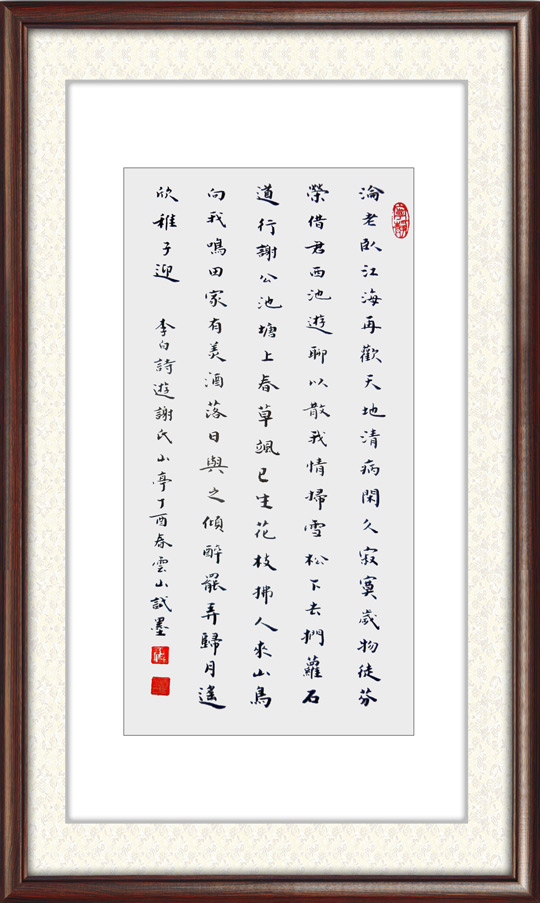 淪老臥江海再歡天地清病閑久寂寞歲物徒芬
榮借君西池遊聊以散我情掃雪松下去捫蘿石
道行謝公池塘上春草颯已生花枝拂人來山鳥
向我鳴田家有美酒落日與之傾醉罷弄歸月遙
欣稚子迎 李白詩遊謝氏山亭丁酉春雲山試墨